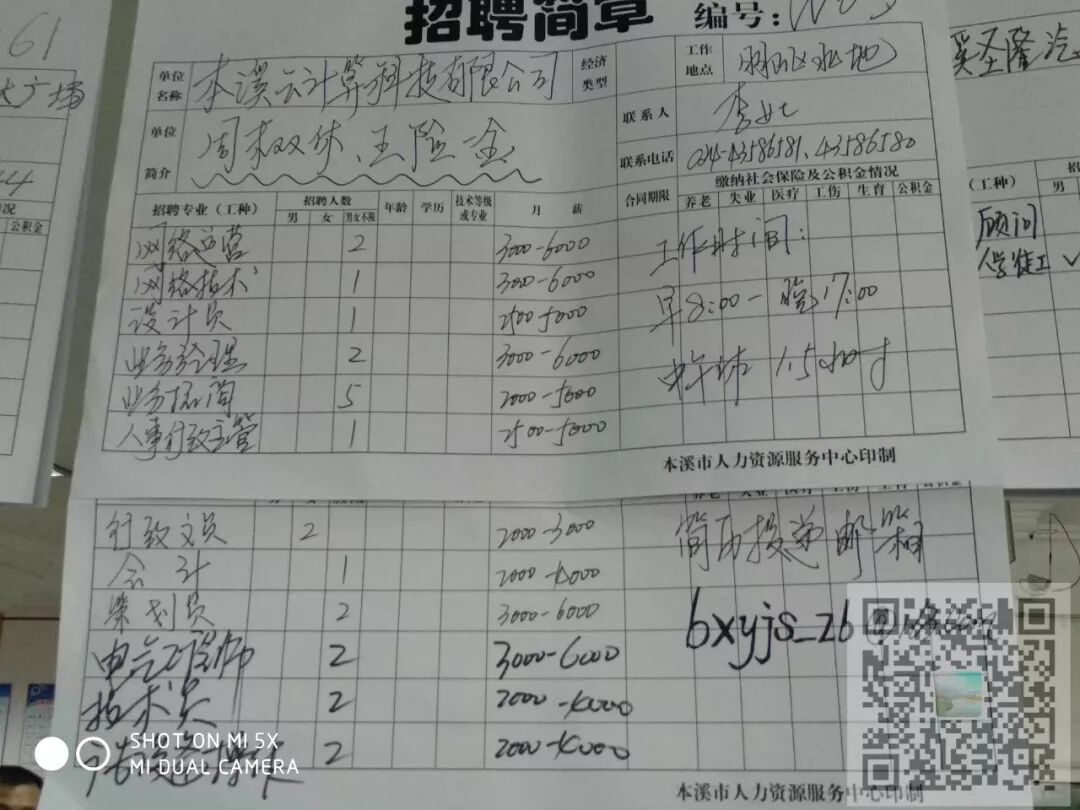 招聘简章 编号:
单位名称 本溪云计算科技有限公司 经济类型 工作地点
联系人 李
单位简介 周末双休、五险一金
联系电话 024-43586581、43586580
缴纳社会保险及公积金情况
招聘专业（工种） 招聘人数 男 女 男女不限 年龄 学历 技术等级或专业 月薪 合同期限 养老 失业 医疗 工伤 生育 公积金
网络运营 2 3000-6000 工作时间:
网络技术 1 3000-6000
设计员 1 2500-5000 早8:00-晚17:00
业务经理 2 3000-6000
业务顾问 5 2000-5000 中午休1.5小时
人事行政主管 1 2500-5000
本溪市人力资源服务中心印制
行政文员 2 2000-3000 简历投递邮箱
会计 1 2000-4000
策划员 2 3000-6000 bxyjs_zb@
电气工程师 2 3000-6000
技术员 2 2000-4000
2 2000-4000
本溪市人力资源服务中心印制
61
广场
公积金
奚圣隆汽
（工种） 男
顾问
学徒工 ✓
SHOT ON MI 5X
MI DUAL CAMERA